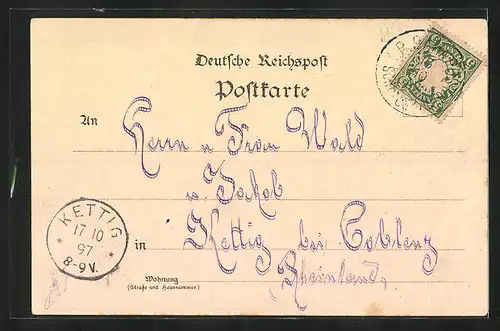 Deutsche Reichspost
Postkarte
An
Herrn u Frau Wald
u. Jakob
in Kettig bei Coblenz
Rheinland.
Wohnung
(Straße und Hausnummer)
KETTIG
17 10
97
8-9V.